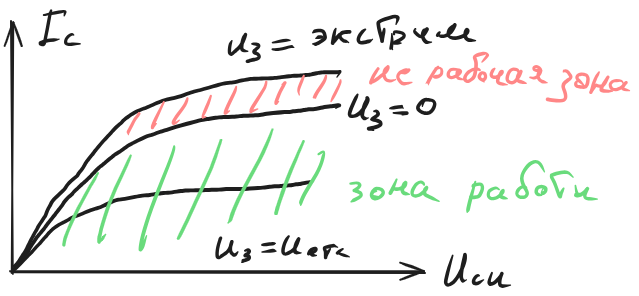 Iс
uз = экстрим
не рабочая зона
uз = 0
зона работы
uз = uотс
Uси